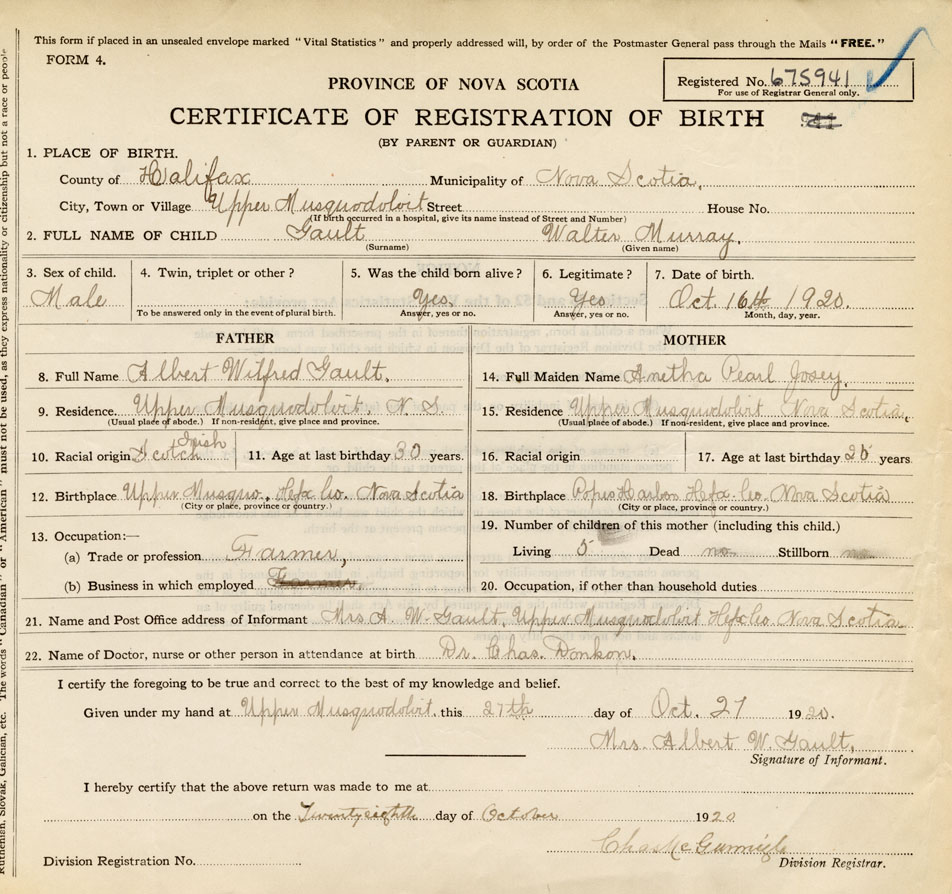 This form if placed in an unsealed envelope marked "Vital Statistics" and properly addressed will, by order of the Postmaster General pass through the Mails "FREE."
FORM 4.
Registered No. 675941
For use of Registrar General only.
PROVINCE OF NOVA SCOTIA
CERTIFICATE OF REGISTRATION OF BIRTH
(BY PARENT OR GUARDIAN)
1. PLACE OF BIRTH.
County of Halifax Municipality of Nova Scotia,
City, Town or Village Upper Musquodoboit Street House No.
(If birth occurred in a hospital, give its name instead of Street and Number)
2. FULL NAME OF CHILD Gault Walter Murray,
(Surname) (Given name)
3. Sex of child. 4. Twin, triplet or other? 5. Was the child born alive? 6. Legitimate? 7. Date of birth.
Male Yes, Yes. Oct. 16th 1920.
To be answered only in the event of plural birth. Answer, yes or no. Answer, yes or no. Month, day, year.
FATHER MOTHER
8. Full Name Albert Wilfred Gault, 14. Full Maiden Name Anetha Pearl Josey,
9. Residence. Upper Musquodoboit, N S. 15. Residence Upper Musquodoboit Nova Scotia,
(Usual place of abode.) If non-resident, give place and province. (Usual place of abode.) If non-resident, give place and province.
10. Racial origin Scotch Irish 11. Age at last birthday 30 years. 16. Racial origin 17. Age at last birthday years.
12. Birthplace Upper Musquo., Hfx Co. Nova Scotia 18. Birthplace Popes Harbor Hfx Co. Nova Scotia
(City or place, province or country.) (City or place, province or country.)
13. Occupation:— 19. Number of children of this mother (including this child.)
(a) Trade or profession Farmer, Living 5 Dead no Stillborn no
(b) Business in which employed Farmer 20. Occupation, if other than household duties
21. Name and Post Office address of Informant Mrs A. W. Gault, Upper Musquodoboit Hfx Co. Nova Scotia
22. Name of Doctor, nurse or other person in attendance at birth Dr. Chas. Donkon,
I certify the foregoing to be true and correct to the best of my knowledge and belief.
Given under my hand at Upper Musquodoboit, this 27th day of Oct. 27 1920.
Mrs. Albert W. Gault,
Signature of Informant.
I hereby certify that the above return was made to me at
on the Twentyeighth day of October 1920
Chas
Division Registration No. Division Registrar.
Ruthenian, Slovak, Galician, etc. The words "Canadian" or "American" must not be used, as they express nationality or citizenship but not a race or people